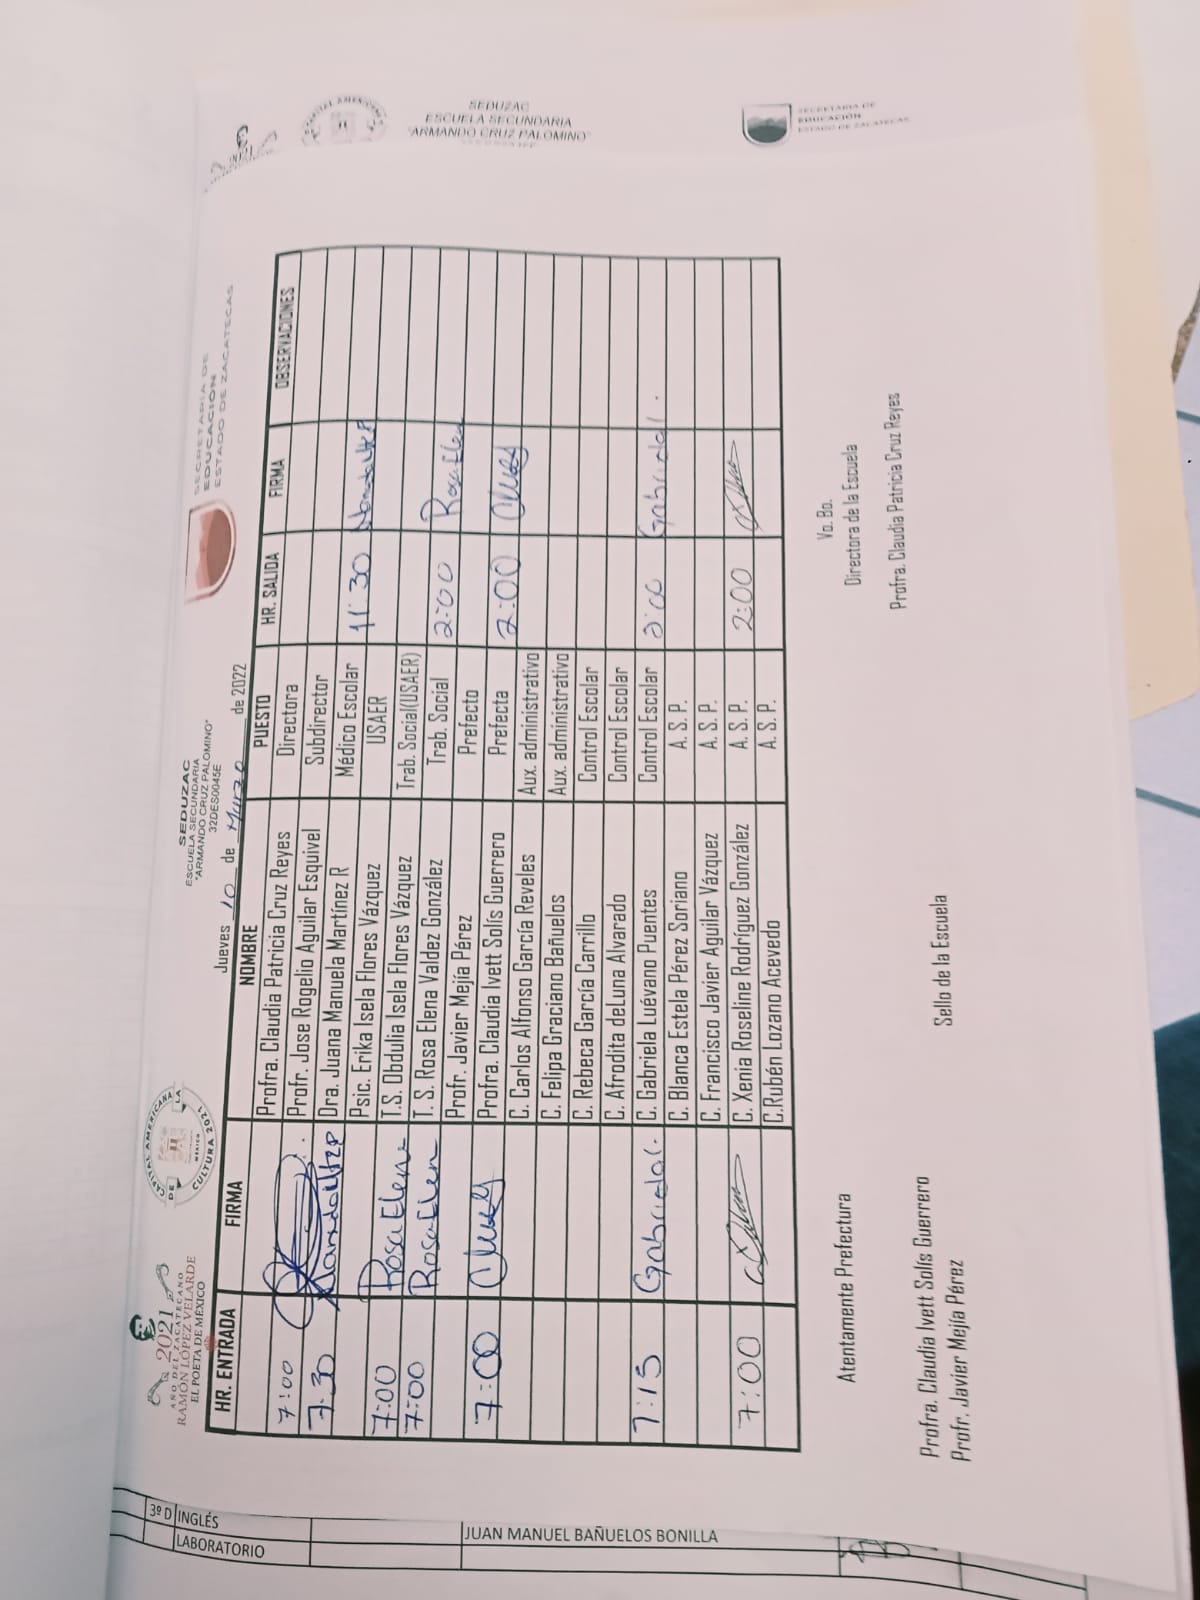 SEDUZAC
ESCUELA SECUNDARIA
"ARMANDO CRUZ PALOMINO"
SECRETARÍA DE
EDUCACIÓN
ESTADO DE ZACATECAS
2021
AÑO DEL ZACATECANO
RAMÓN LÓPEZ VELARDE
EL POETA DE MÉXICO
CAPITAL AMERICANA
DE LA
CULTURA 2021
MÉXICO
SEDUZAC
ESCUELA SECUNDARIA
"ARMANDO CRUZ PALOMINO"
32DES0045E
SECRETARÍA DE
EDUCACIÓN
ESTADO DE ZACATECAS
Jueves 10 de Marzo de 2022
HR. ENTRADA FIRMA NOMBRE PUESTO HR. SALIDA FIRMA OBSERVACIONES
Profra. Claudia Patricia Cruz Reyes Directora
7:00 Profr. Jose Rogelio Aguilar Esquivel Subdirector
7:30 Dra. Juana Manuela Martínez R Médico Escolar 11:30
Psic. Erika Isela Flores Vázquez USAER
7:00 Rosa Elena T.S. Obdulia Isela Flores Vázquez Trab. Social(USAER)
7:00 Rosa Elen T. S. Rosa Elena Valdez González Trab. Social 2:00 Rosa Elen
Profr. Javier Mejía Pérez Prefecto
7:00 Profra. Claudia Ivett Solís Guerrero Prefecta 2:00
C. Carlos Alfonso García Reveles Aux. administrativo
C. Felipa Graciano Bañuelos Aux. administrativo
C. Rebeca García Carrillo Control Escolar
C. Afrodita deLuna Alvarado Control Escolar
7:15 Gabriela L. C. Gabriela Luévano Puentes Control Escolar 2:00 Gabriela L.
C. Blanca Estela Pérez Soriano A. S. P.
C. Francisco Javier Aguilar Vázquez A. S. P.
7:00 C. Xenia Roseline Rodríguez González A. S. P. 2:00
C.Rubén Lozano Acevedo A. S. P.
Vo. Bo.
Atentamente Prefectura Directora de la Escuela
Profra. Claudia Patricia Cruz Reyes
Profra. Claudia Ivett Solís Guerrero Sello de la Escuela
Profr. Javier Mejía Pérez
3º D INGLÉS
LABORATORIO
JUAN MANUEL BAÑUELOS BONILLA